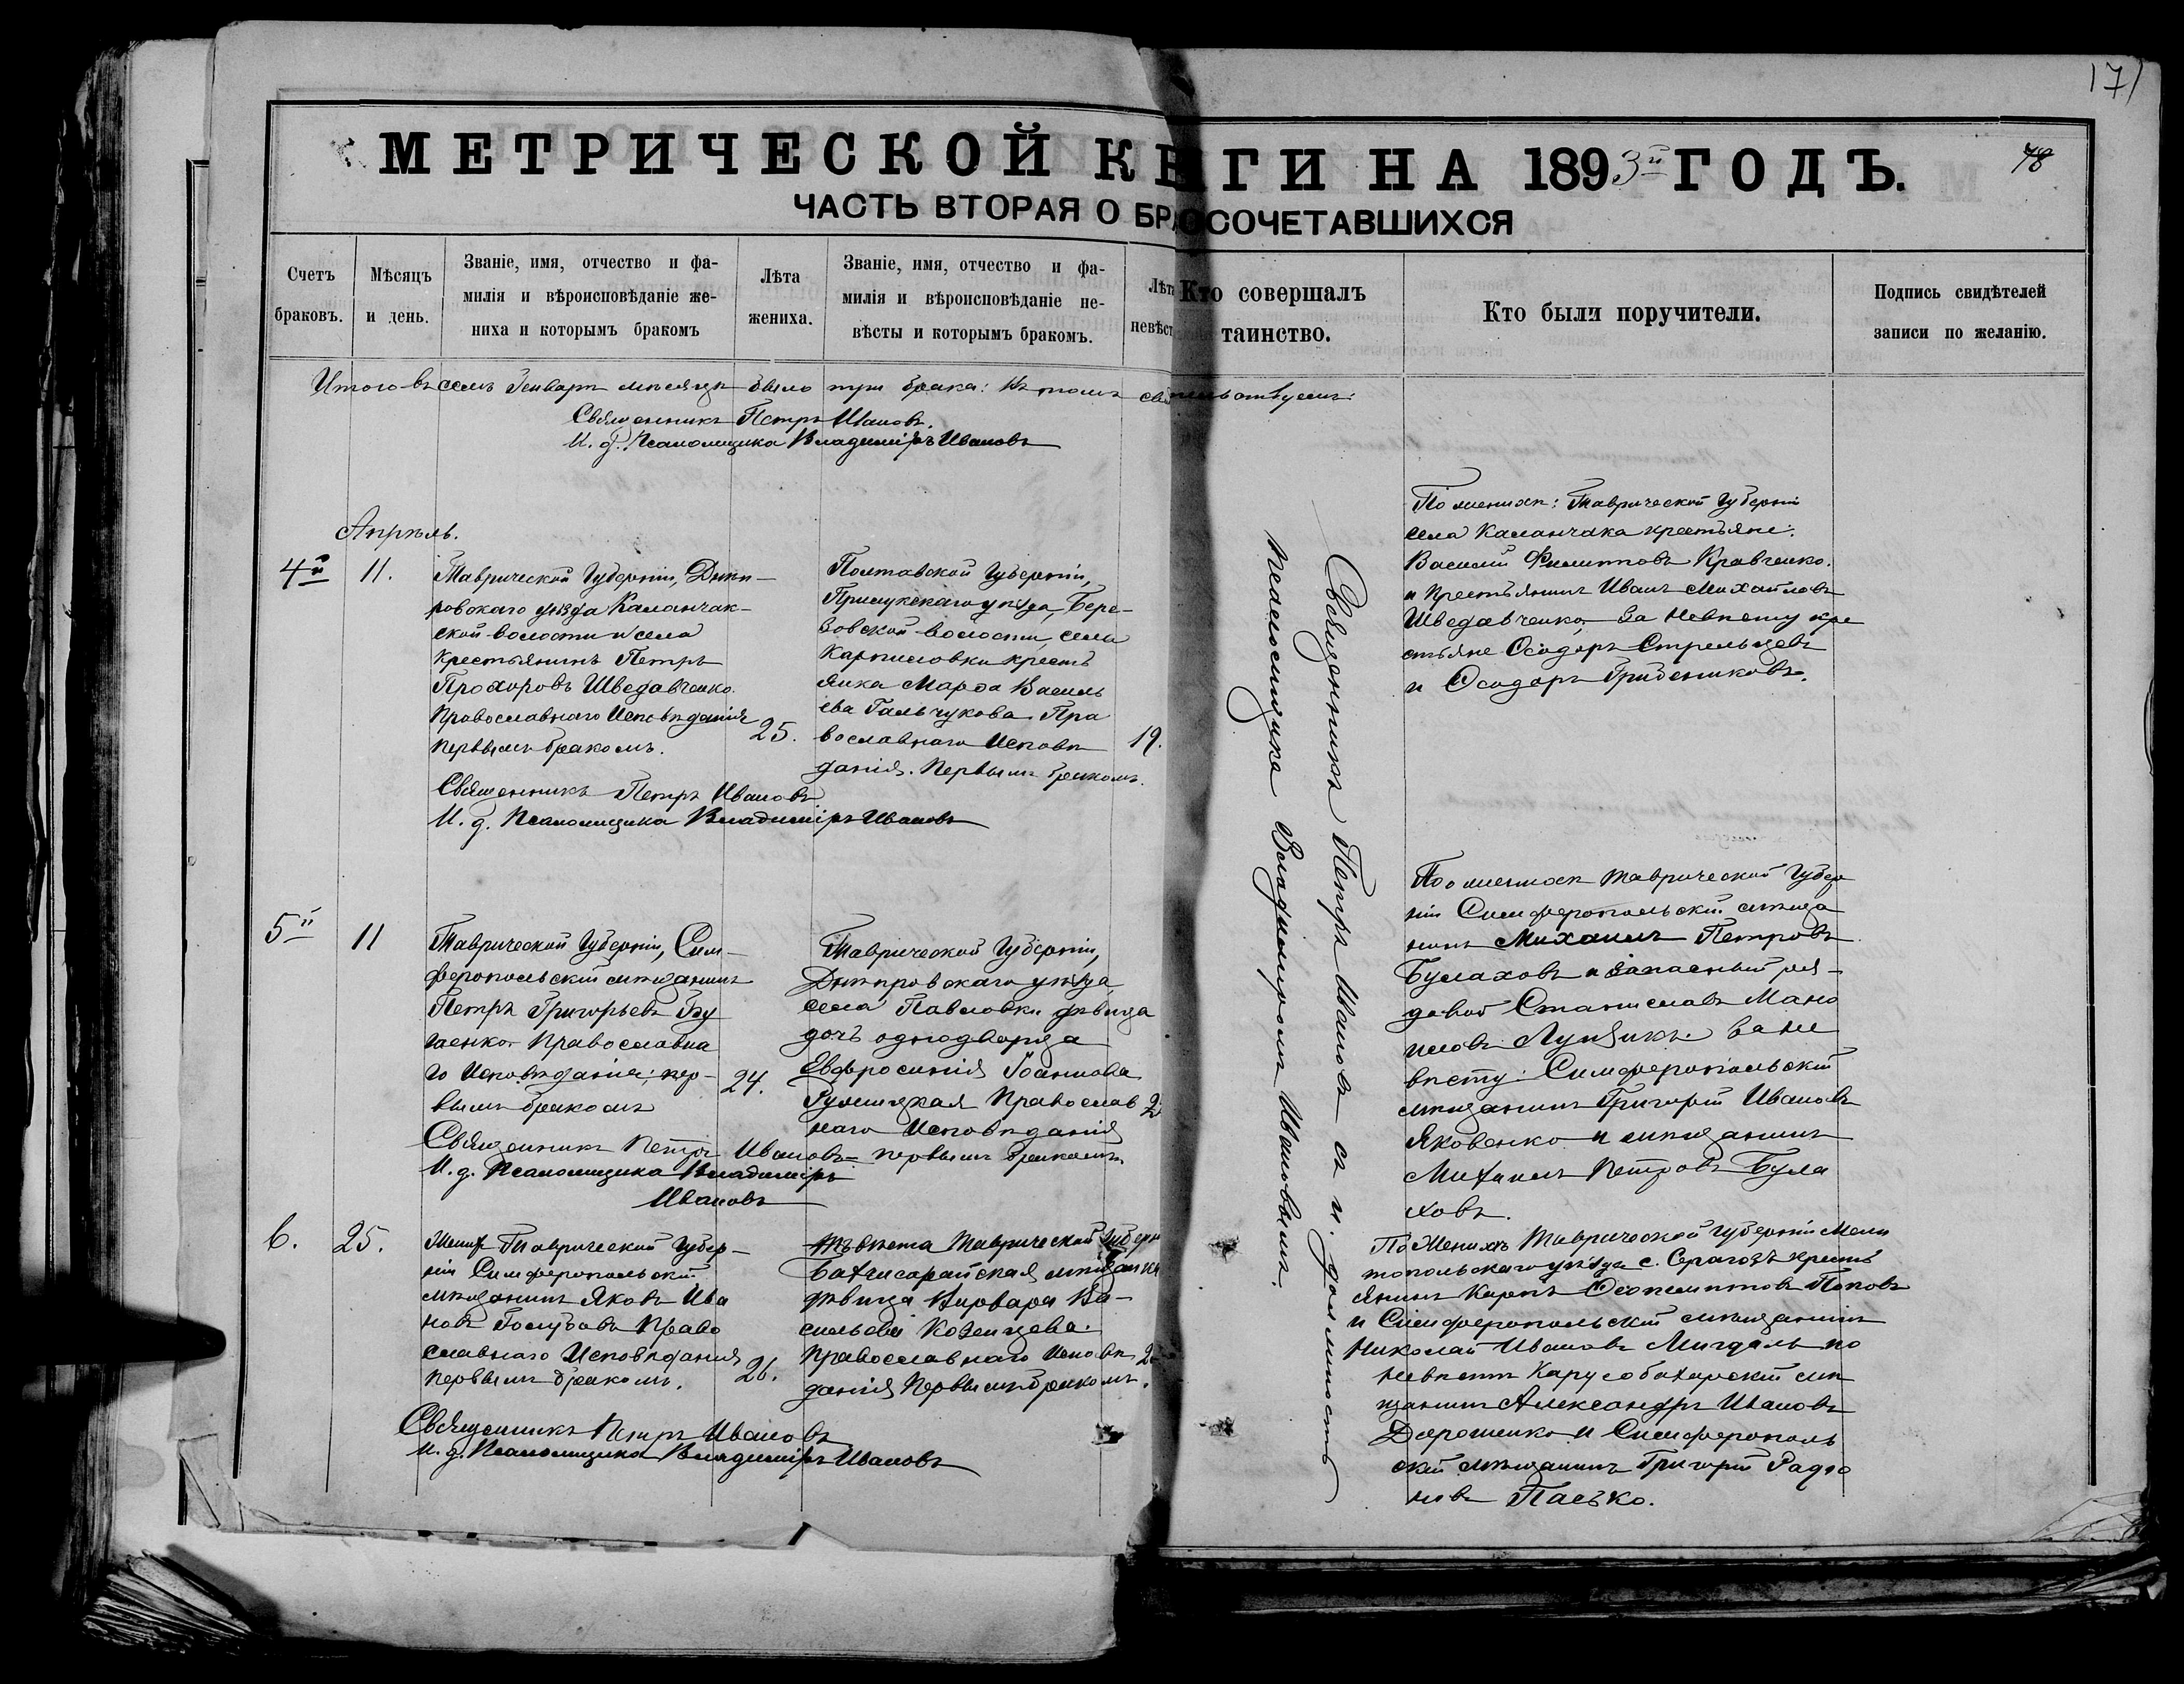 171
МЕТРИЧЕСКОЙ КНИГИ НА 1893й ГОДЪ.
78
ЧАСТЬ ВТОРАЯ О БРАКОСОЧЕТАВШИХСЯ
Счетъ браковъ.
Мѣсяцъ и день.
Званіе, имя, отчество и фа-
милія и вѣроисповѣданіе же-
ниха и которымъ бракомъ
Лѣта
жениха.
Званіе, имя, отчество и фа-
милія и вѣроисповѣданіе не-
вѣсты и которымъ бракомъ.
Лѣта
невѣст
Кто совершалъ
таинство.
Кто были поручители.
Подпись свидѣтелей
записи по желанію.
Итого въ семъ Январѣ мѣсяцѣ было три брака: въ томъ свидѣтельствуемъ:
Священникъ Петръ Ивановъ.
И. д. Псаломщика Владиміръ Ивановъ
Апрѣль.
4й
11.
Таврической Губерніи, Днѣп-
ровскаго уѣзда Каланчак-
ской волости и села
крестьянинъ Петръ
Прохоровъ Шведавченко.
Православнаго Исповѣданія
первымъ бракомъ.
25.
Полтавской Губерніи,
Прилукскаго уѣзда, Бере-
зовской волости, села
Карпиловки кресть
янка Марѳа Василь
ева Гальчукова. Пра
вославнаго Исповѣ
данія. Первымъ бракомъ.
19.
Священникъ Петръ Ивановъ
И. д. Псаломщика Владиміръ Ивановъ
По женихѣ: Таврической Губерніи
села Каланчака крестьяне:
Василій Филипповъ Кравченко.
и крестьянинъ Иванъ Михайловъ
Шведавченко, За Невѣсту кре
стьяне Ѳеодоръ Стрельцевъ
и Ѳеодоръ Грибениковъ.
5й
11
Таврической Губерніи, Сим-
феропольскій мѣщанинъ
Петръ Григорьевъ
Православна
го Исповѣданія; пер-
вымъ бракомъ
24.
Таврической Губерніи,
Днѣпровскаго уѣзда
села Павловки дѣвица
дочь однодворца
Евфросинія Іоаннова
Православ
наго Исповѣданія
первымъ бракомъ.
2
Священникъ Петръ Ивановъ
И. д. Псаломщика Владиміръ
Ивановъ
По женихѣ Таврической Губер
ніи Симферопольскій мѣща
нинъ Михаилъ Петровъ
Булаховъ и запасный ря-
довой Станиславъ Мано
иловъ за не
вѣсту: Симферопольскій
мѣщанинъ Григорій Ивановъ
Яковенко и мѣщанинъ
Михаилъ Петровъ Була
ховъ.
6.
25.
Жених Таврической Губер-
ніи Симферопольскій
мѣщанинъ Яковъ Ива
новъ Голубовъ Право
славнаго Исповѣданія
первымъ бракомъ.
26.
Невѣста Таврической Губерн
Бахчисарайская мѣщанка
дѣвица Варвара Ва-
сильева Казенцева.
Православнаго Исповѣ
данія первымъ бракомъ.
2
Священникъ Петръ Ивановъ
И. д. Псаломщика Владиміръ Ивановъ
По Женихѣ Таврической Губерніи Мели
топольскаго уѣзда с. Серагозъ кресть
янинъ Карпъ Ѳеоѳемптовъ Поповъ
и Симферопольскій мѣщанинъ
Николай Ивановъ Мигдаль по
невѣстѣ Карусобазарскій мѣ
щанинъ Александръ Ивановъ
Дорошенко и Симферополь
скій мѣщанинъ Григорій Радіо
новъ Пасько.
Священникъ Петръ Ивановъ съ и. должность
псаломщика Владиміромъ Ивановымъ.